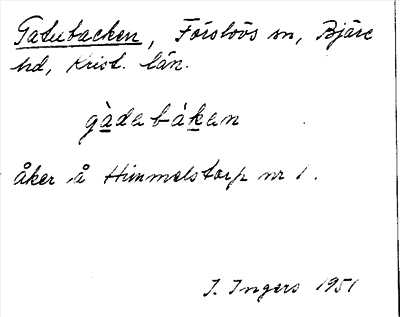 Gatubacken, Förslövs sn, Bjäre
hd, Krist. län.
gàdebàken
åker å Himmelstorp nr 1.
I. Ingers 1951